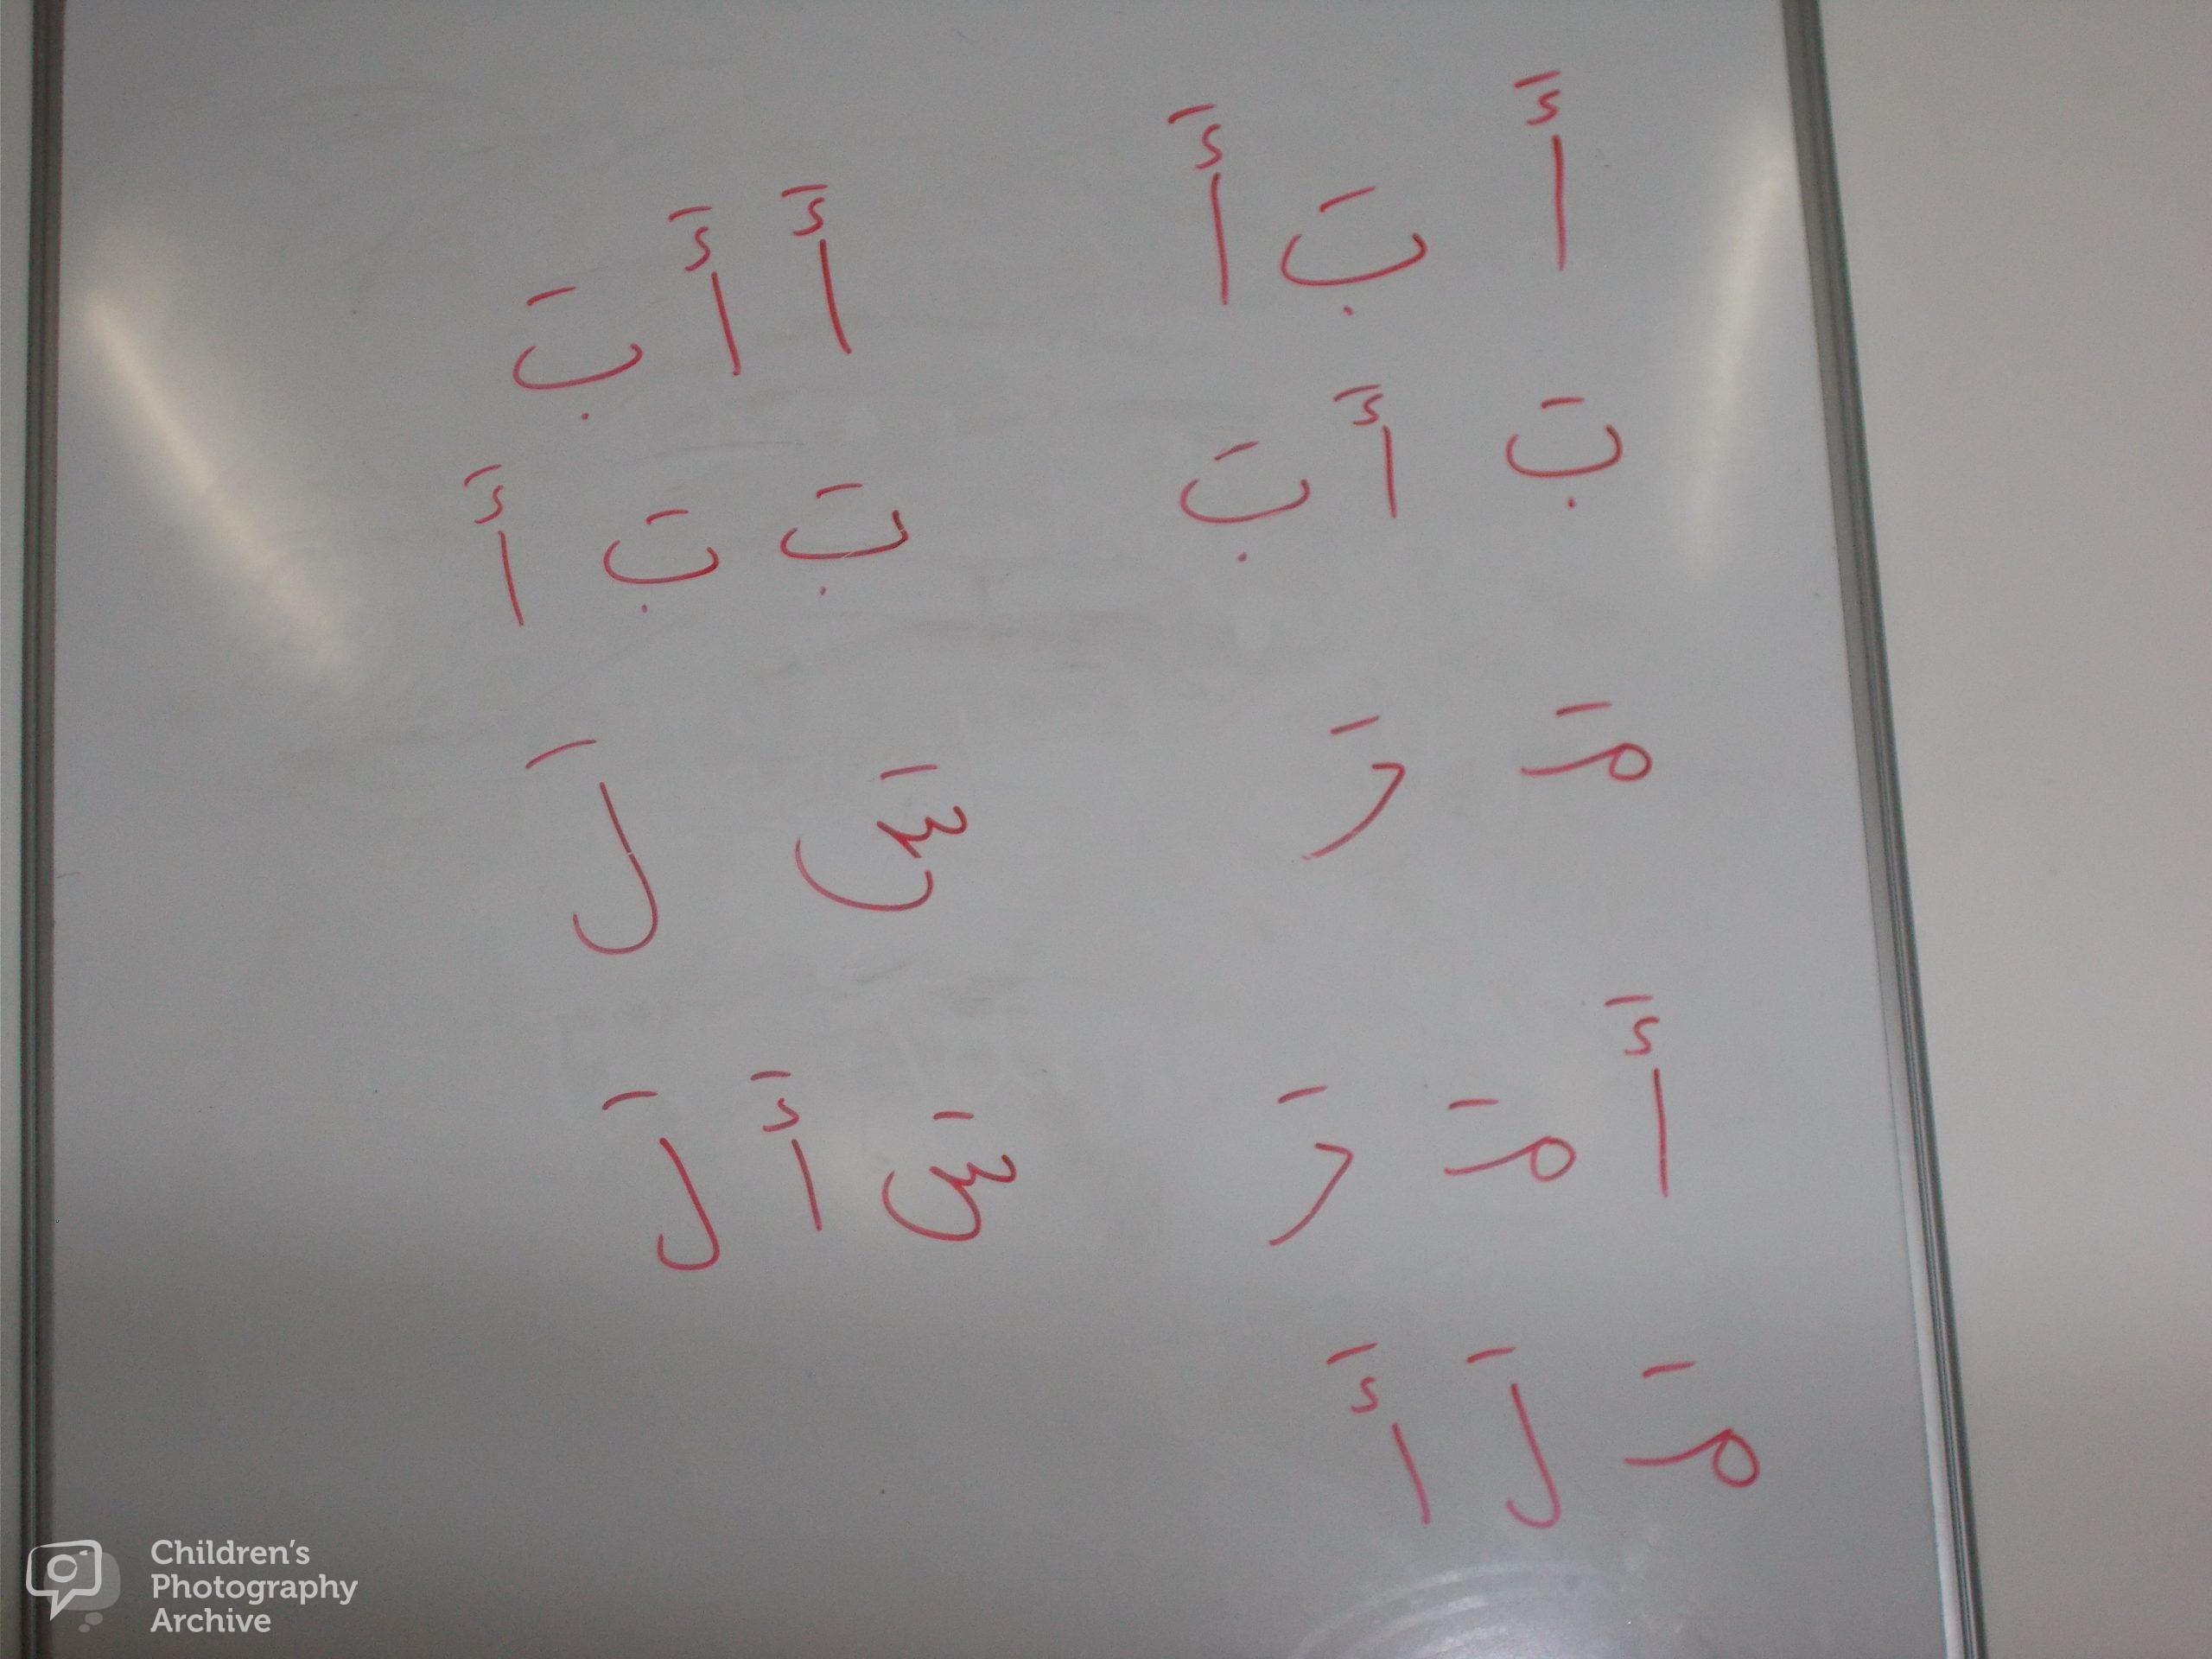 أَ بَ أَ أَ أَ بَ
بَ أَ بَ بَ بَ أَ
مَـ رَ سَ لَ
أَ مَـ رَ سَ أَ لَ
مَـ لَ أَ
Children's
Photography
Archive